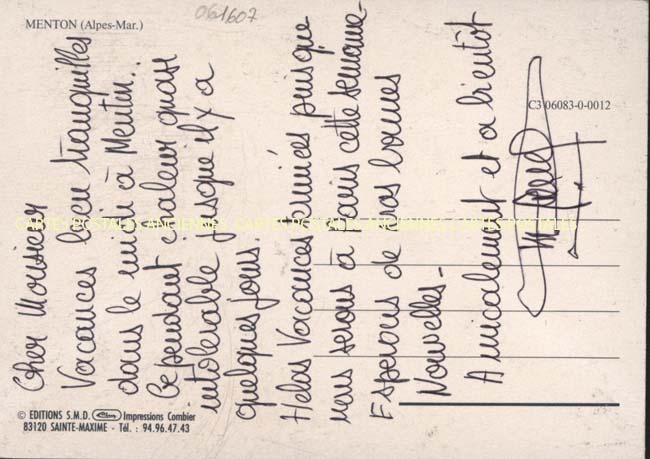 MENTON (Alpes-Mar.)
061607
C3 06083-0-0012
Cher Monsieur
Vacances bien tranquilles
dans le midi à Menton...
Cependant chaleur quasi
intolérable jusque il y a
quelques jours.
Helas Vacances puisque
nous serons à Paris cette semaine -
Esperons de vos bonnes
Nouvelles -
Amicalement et a bientôt
CARTES POSTALES ANCIENNES
© EDITIONS S.M.D. Impressions Combier
83120 SAINTE-MAXIME - Tél. : 94.96.47.43